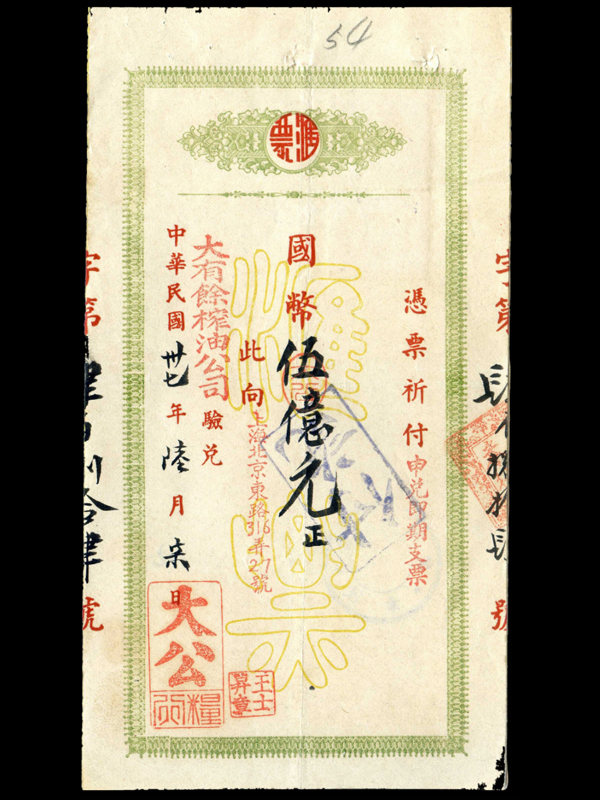 54
匯票
憑票祈付申兑即期支票
國幣伍億元正
此向上海北京東路316弄27號
大有餘榨油公司驗兑
中華民國卅七年陸月 日
大公
糧行
王士
昇章
字第
號
字第
號